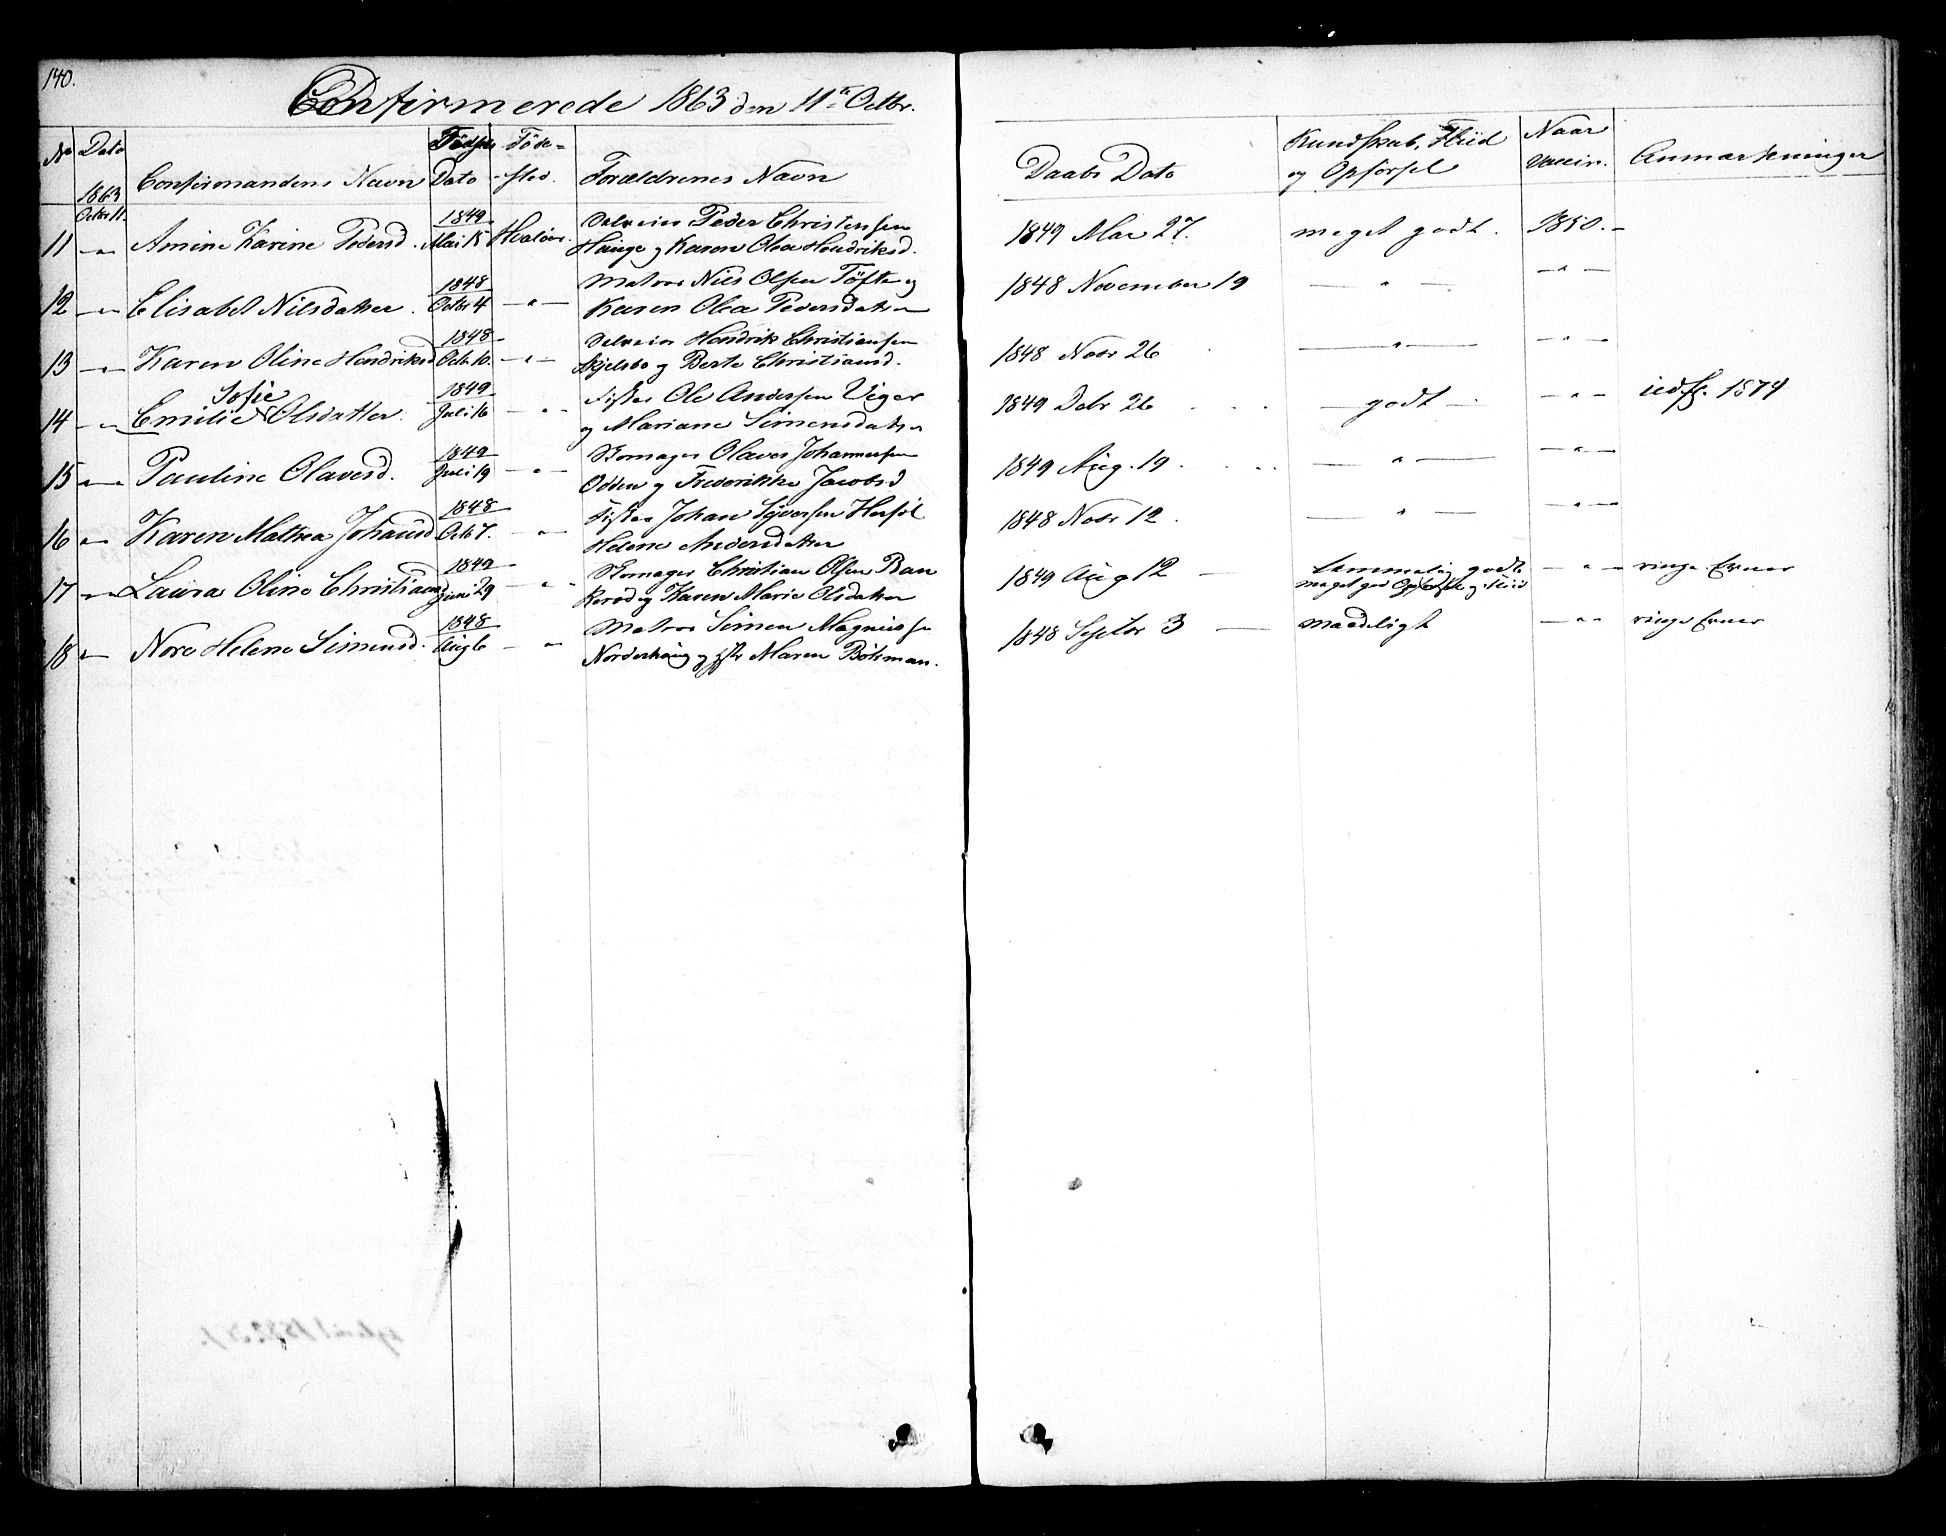 140.
Confirmerede 1863 den 11te Octbr.
No Dato Confirmandens Navn Fødsels Dato Føde-sted. Forældrenes Navn Daabs Dato Kundskab, Fliid og Opførsel Naar vaccin. Anmærkninger
1863 Octbr 11.
11 -"- Amine Karine Pedersd. 1849 Mai 15 Hvaløer. Selveier Peder Christenssen 1849 Mai 27. meget godt. 1850.-
Hauge og Karen Olea Hendriksd.
12 -"- Elisabet Nilsdatter. 1848 Octbr 4 -"- Matros Nils Olsen Tøfte og 1848 November 19 -"- -"-
Karen Olea Pedersdatter
13 -"- Karen Oline Hendriksd 1848 Octb. 10. -"- Selveier Hendrik Christiansen 1848 Novbr 26 -"- -"-
Skjelsbo og Berte Christiansd.
14 -"- Emilie Sofie Olsdatter. 1849 Juli 16 -"- Fisker Ole Andersen Viger 1849 Debr 26 -godt- -"- udst. 1879
og Mariane Simensdatter
15 -"- Pauline Olavesd. 1849 Juli 19 -"- Skomager Olaves Johannessen 1849 Aug. 19. -"- -"-
Odden og Frederikke Jacobsd
16 -"- Karen Mathea Johansd 1848 Octb 7. -"- Fisker Johan Syversen 1848 Novbr 12. -"- -"-
Helene Andersdatter
17 -"- Laura Oline Christiansd 1849 Juni 29 -"- Skomager Christian Olsen Ban 1849 Aug 12 - temmelig godt -"- ringe Evner
kerød og Karen Marie Olsdatter meget god Opførsel og Fliid
18 -"- Nore Helene Simensd. 1848 Aug 6 -"- Matros Simen Magnussen 1848 Septbr 3 - maadeligt -"- ringe Evner
Norderhaug og Maren Bøhman.